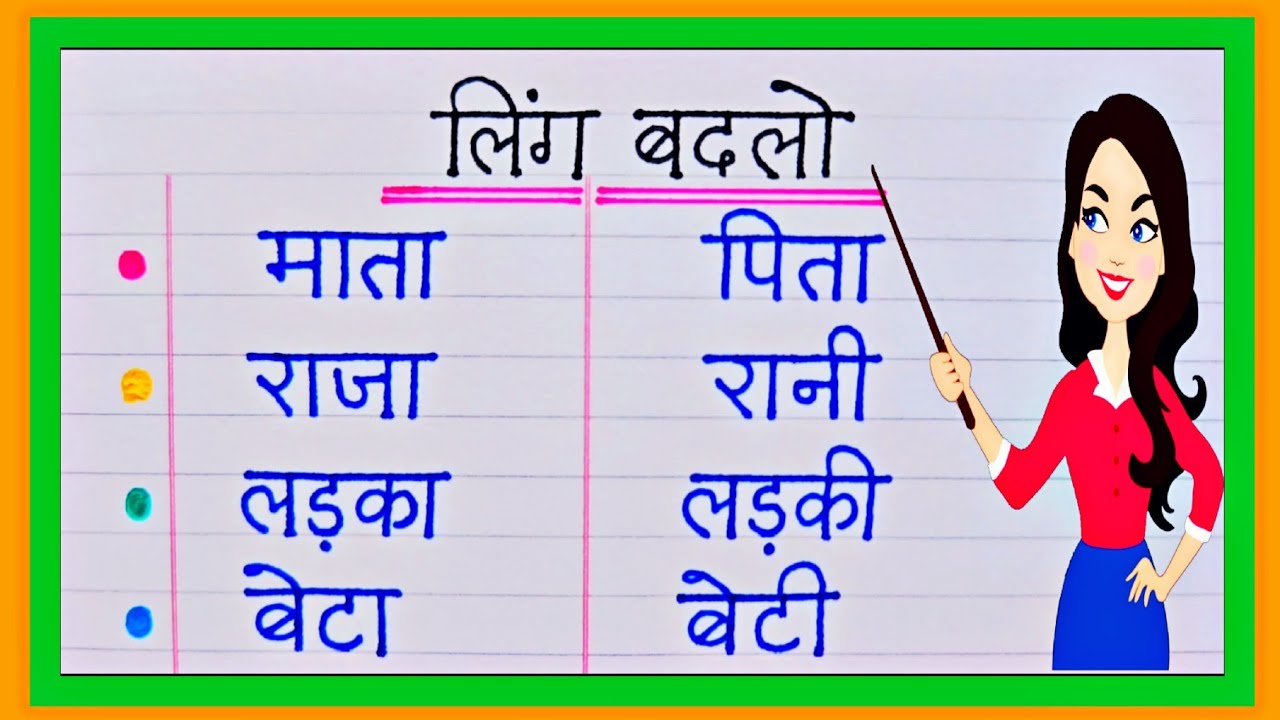 लिंग बदलो
माता पिता
राजा रानी
लड़का लड़की
बेटा बेटी